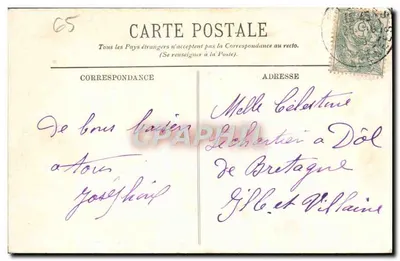 65
CARTE POSTALE
Tous les Pays étrangers n'acceptent pas la Correspondance au recto.
(Se renseigner à la Poste).
CORRESPONDANCE
ADRESSE
De bons baisers
a tous
Joséphine
Melle Célestine
a Dôl
de Bretagne
Ille et Villaine